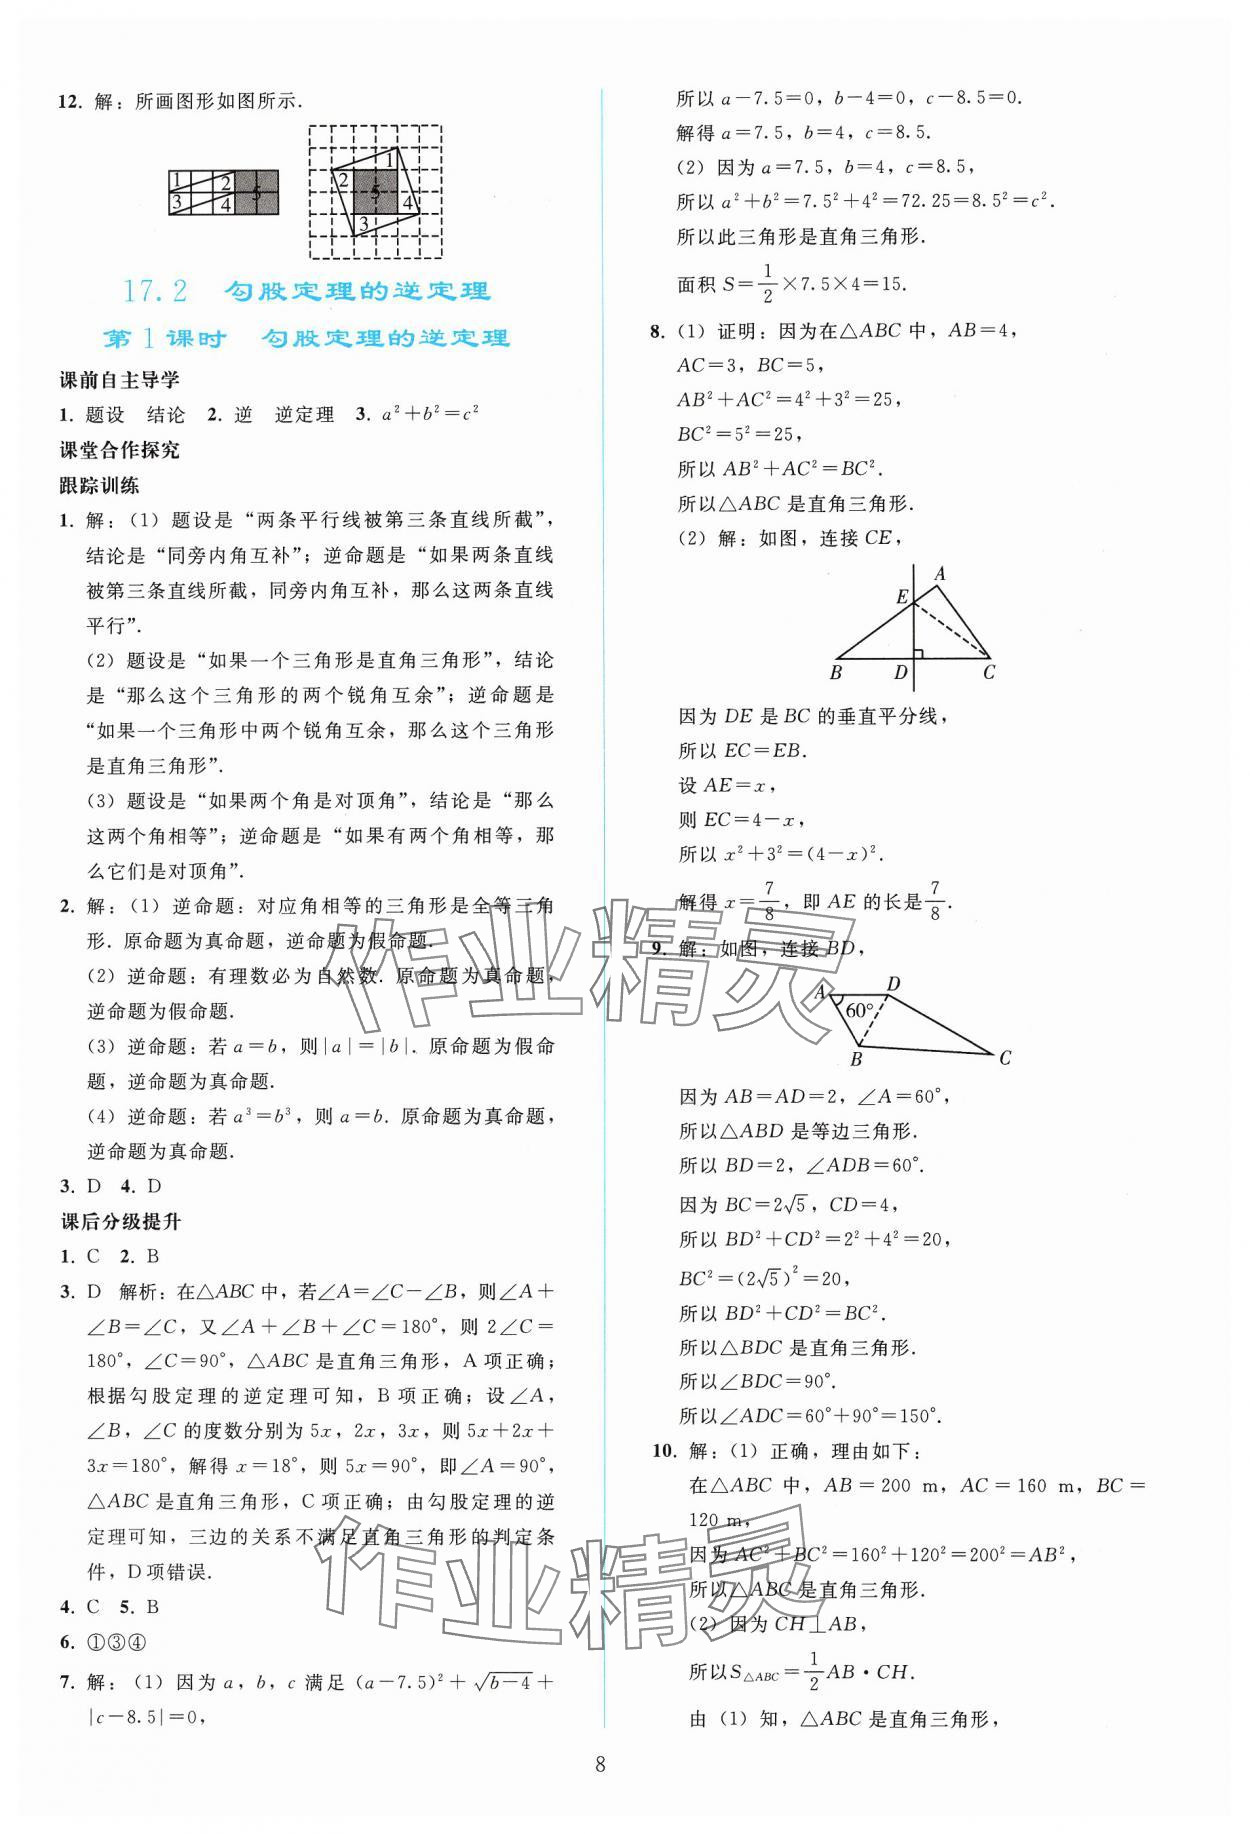 12. 解：所画图形如图所示.
1 2 3 4 5
1 2 5 4 3
17.2 勾股定理的逆定理
第1课时 勾股定理的逆定理
课前自主导学
1. 题设 结论 2. 逆 逆定理 3. a²+b²=c²
课堂合作探究
跟踪训练
1. 解：(1) 题设是“两条平行线被第三条直线所截”，
结论是“同旁内角互补”；逆命题是“如果两条直线
被第三条直线所截，同旁内角互补，那么这两条直线
平行”.
(2) 题设是“如果一个三角形是直角三角形”，结论
是“那么这个三角形的两个锐角互余”；逆命题是
“如果一个三角形中两个锐角互余，那么这个三角形
是直角三角形”.
(3) 题设是“如果两个角是对顶角”，结论是“那么
这两个角相等”；逆命题是“如果有两个角相等，那
么它们是对顶角”.
2. 解：(1) 逆命题：对应角相等的三角形是全等三角
形. 原命题为真命题，逆命题为假命题.
(2) 逆命题：有理数必为自然数. 原命题为真命题，
逆命题为假命题.
(3) 逆命题：若 a=b，则|a|=|b|. 原命题为假命
题，逆命题为真命题.
(4) 逆命题：若 a³=b³，则 a=b. 原命题为真命题，
逆命题为真命题.
3. D 4. D
课后分级提升
1. C 2. B
3. D 解析：在△ABC 中，若∠A=∠C-∠B，则∠A+
∠B=∠C，又∠A+∠B+∠C=180°，则 2∠C=
180°，∠C=90°，△ABC 是直角三角形，A 项正确；
根据勾股定理的逆定理可知，B 项正确；设∠A，
∠B，∠C 的度数分别为 5x，2x，3x，则 5x+2x+
3x=180°，解得 x=18°，则 5x=90°，即∠A=90°，
△ABC 是直角三角形，C 项正确；由勾股定理的逆
定理可知，三边的关系不满足直角三角形的判定条
件，D 项错误.
4. C 5. B
6. ①③④
7. 解：(1) 因为 a，b，c 满足 (a-7.5)²+√(b-4)+
|c-8.5|=0，
所以 a-7.5=0，b-4=0，c-8.5=0.
解得 a=7.5，b=4，c=8.5.
(2) 因为 a=7.5，b=4，c=8.5，
所以 a²+b²=7.5²+4²=72.25=8.5²=c².
所以此三角形是直角三角形.
面积 S=1/2×7.5×4=15.
8. (1) 证明：因为在△ABC 中，AB=4，
AC=3，BC=5，
AB²+AC²=4²+3²=25，
BC²=5²=25，
所以 AB²+AC²=BC².
所以△ABC 是直角三角形.
(2) 解：如图，连接 CE，
A
E
B D C
因为 DE 是 BC 的垂直平分线，
所以 EC=EB.
设 AE=x，
则 EC=4-x，
所以 x²+3²=(4-x)².
解得 x=7/8，即 AE 的长是7/8.
9. 解：如图，连接 BD，
A D
60°
B C
因为 AB=AD=2，∠A=60°，
所以△ABD 是等边三角形.
所以 BD=2，∠ADB=60°.
因为 BC=2√5，CD=4，
所以 BD²+CD²=2²+4²=20，
BC²=(2√5)²=20，
所以 BD²+CD²=BC².
所以△BDC 是直角三角形.
所以∠BDC=90°.
所以∠ADC=60°+90°=150°.
10. 解：(1) 正确，理由如下：
在△ABC 中，AB=200 m，AC=160 m，BC=
120 m，
因为 AC²+BC²=160²+120²=200²=AB²，
所以△ABC 是直角三角形.
(2) 因为 CH⊥AB，
所以S△ABC=1/2AB·CH.
由 (1) 知，△ABC 是直角三角形，
8
作业精灵
作业精灵